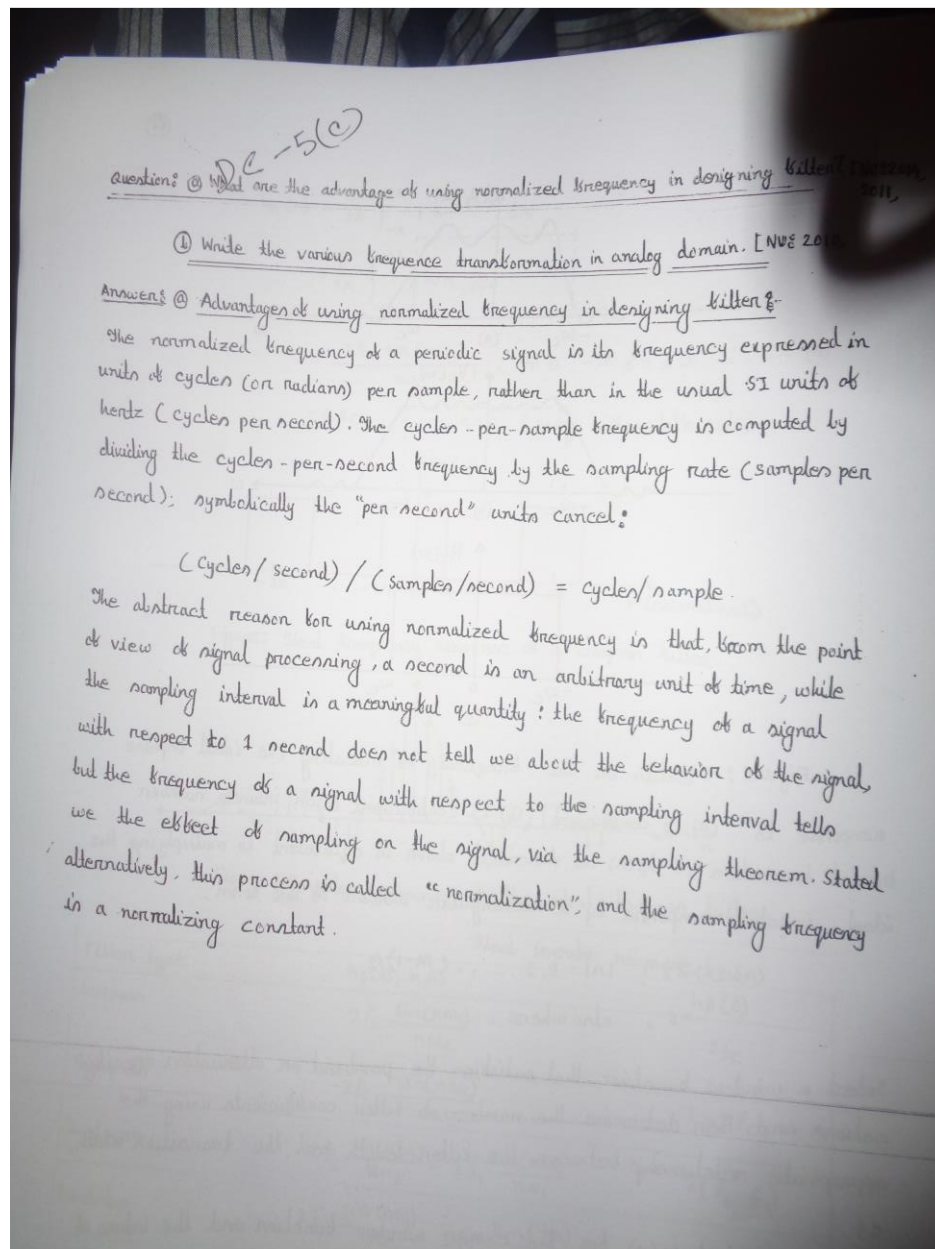 DC - 5(c)
Question: ⓐ What are the advantage of using normalized frequency in designing filter?
2011,
① Write the various frequence transformation in analog domain. [NUE 201
Answer: ⓐ Advantages of using normalized frequency in designing filter :-
The normalized frequency of a periodic signal is its frequency expressed in
units of cycles (or radians) per sample, rather than in the usual SI units of
hertz (cycles per second). The cycles-per-sample frequency is computed by
dividing the cycles-per-second frequency by the sampling rate (samples per
second); symbolically the "per second" units cancel:
(Cycles/second) / (samples/second) = cycles/sample.
The abstract reason for using normalized frequency is that, from the point
of view of signal processing, a second is an arbitrary unit of time, while
the sampling interval is a meaningful quantity: the frequency of a signal
with respect to 1 second does not tell we about the behavior of the signal,
but the frequency of a signal with respect to the sampling interval tells
we the effect of sampling on the signal, via the sampling theorem. Stated
alternatively, this process is called "normalization", and the sampling frequency
is a normalizing constant.